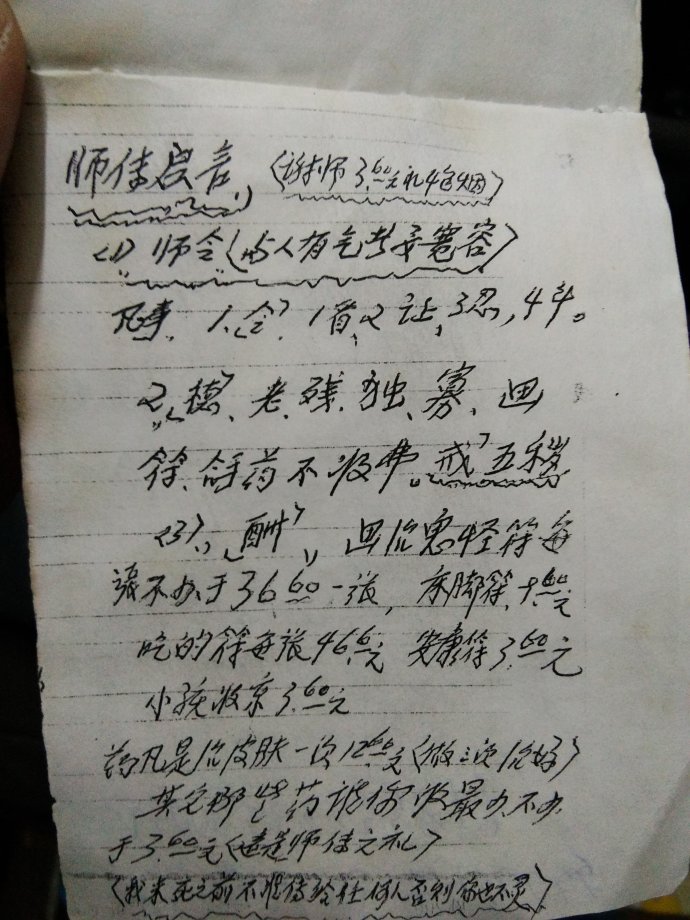 师传启言、(谢师3.60元礼4包烟)
<1> 师令(与人有气学要宽容)
凡事、1、令、1首、2让、3忍,4斗。
2、德、老、残、独、寡、画
符、给药不收费。戒五秽
<3>、酬、画治鬼怪符每
张不少于36.60一张,床脚符
吃的符每张4.66元 安康符3.60元
小孩收京3.60元
药凡是治皮肤一次12.66元(做三次治好)
其它那些药请你收最少不少
于3.60元(这是师传之礼)
(我未死之前不准传给任何人否则你也不灵)